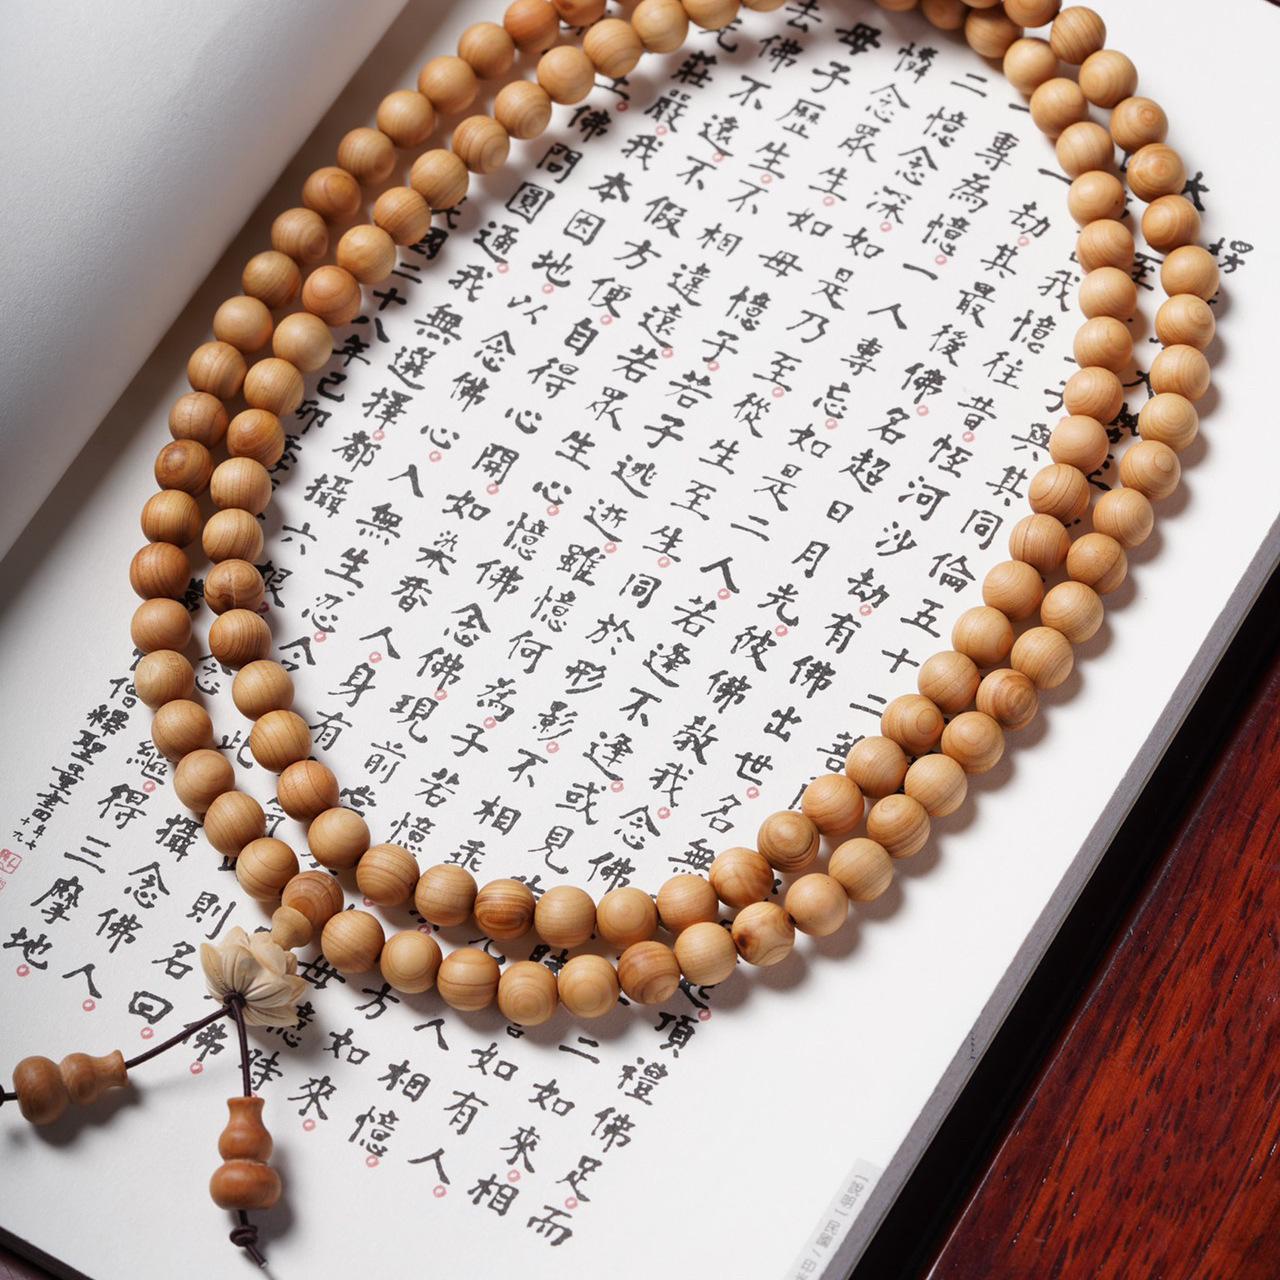 大
楞
至
與其同倫五十二菩
起頂禮佛足而
我憶往昔恆河沙劫有佛出世名無
二如來相
劫其最後佛名超日月光彼佛教我念佛
如有人
專為憶一人專忘如是二人若逢不逢或見
人相憶
二憶念深如是乃至從生至生同於形影不相乖
方如來
憐念眾生如母憶子若子逃逝雖憶何為子若憶
母憶時
母子歷生不相違遠若眾生心憶佛念佛現前當
佛
去佛不遠不假方便自得心開如染香人身有
氣此則名曰
莊嚴我本因地以念佛心入無生忍今
此
攝念佛人
土佛問圓通我無選擇都攝六根
念
繼得三摩地
國二十八年己卯季
僧釋聖量書年七十九